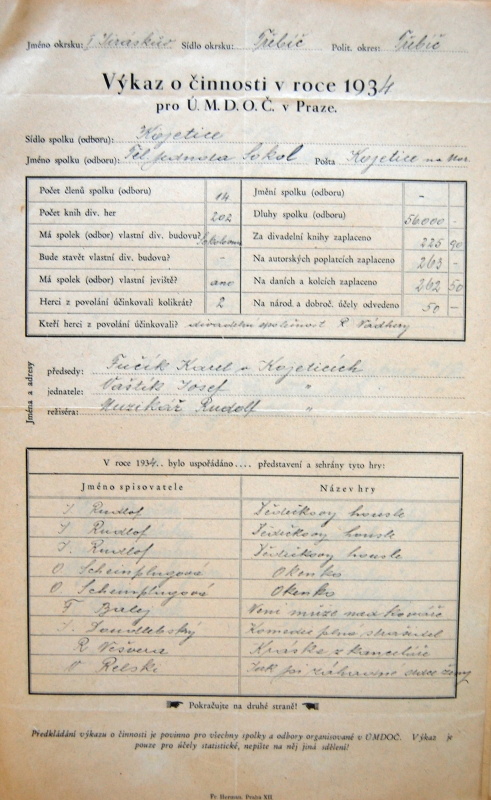 Jméno okrsku: Jiráskův Sídlo okrsku: Třebíč Polit. okres: Třebíč
Výkaz o činnosti v roce 1934
pro Ú.M.D.O.Č. v Praze.
Sídlo spolku (odboru): Kojetice
Jméno spolku (odboru): Těl. jednota Sokol Pošta Kojetice na Mor.
Počet členů spolku (odboru) 14 Jmění spolku (odboru) -
Počet knih div. her 202 Dluhy spolku (odboru) 56.000 -
Má spolek (odbor) vlastní div. budovu? Sokolovnu Za divadelní knihy zaplaceno 225 90
Bude stavět vlastní div. budovu? - Na autorských poplatcích zaplaceno 263 -
Má spolek (odbor) vlastní jeviště? ano Na daních a kolcích zaplaceno 262 50
Herci z povolání účinkovali kolikrát? 2 Na národ. a dobroč. účely odvedeno 50 -
Kteří herci z povolání účinkovali? divadelní společnost R. Vádhery
Jména a adresy
předsedy: Fučík Karel v Kojeticích
jednatele: Vaštík Josef "
režiséra: Muzikář Rudolf "
V roce 1934.. bylo uspořádáno.... představení a sehrány tyto hry:
Jméno spisovatele Název hry
J. Rudlof Dědečkovy housle
J. Rudlof Dědečkovy housle
J. Rudlof Dědečkovy housle
O. Scheinpflugová Okénko
O. Scheinpflugová Okénko
F. Balej Není může nad kováře
J. Doudlebský Komedie plná strašidel
R. Vešvera Kráska z kanceláře
V. Relski Jak při záhavné ovce ženy
Pokračujte na druhé straně!
Předkládání výkazu o činnosti je povinno pro všechny spolky a odbory organisované v ÚMDOČ. Výkaz je
pouze pro účely statistické, nepište na něj jiná sdělení!
Fr. Hermon, Praha XII.